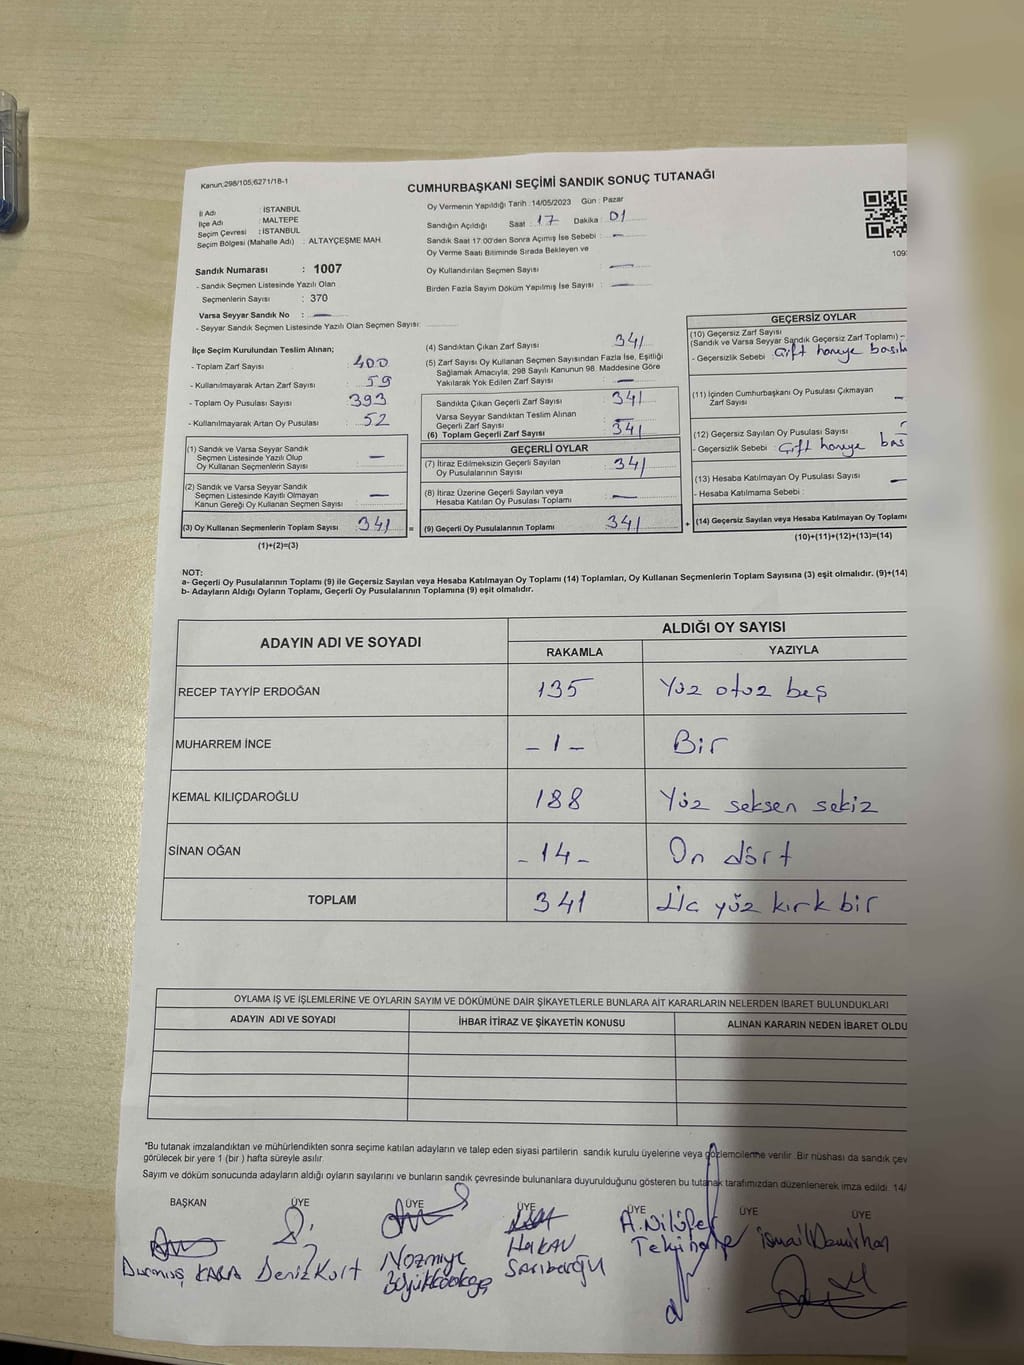 Kanun:298/105;6271/18-1
CUMHURBAŞKANI SEÇİMİ SANDIK SONUÇ TUTANAĞI
İl Adı : İSTANBUL
İlçe Adı : MALTEPE
Seçim Çevresi : İSTANBUL
Seçim Bölgesi (Mahalle Adı) : ALTAYÇEŞME MAH.
Oy Vermenin Yapıldığı Tarih :14/05/2023 Gün : Pazar
Sandığın Açıldığı Saat : 17 Dakika : 01
Sandık Saat 17:00'den Sonra Açımış İse Sebebi : —
Oy Verme Saati Bitiminde Sırada Bekleyen ve
Oy Kullandırılan Seçmen Sayısı : —
Birden Fazla Sayım Döküm Yapılmış İse Sayısı : —
109
Sandık Numarası : 1007
- Sandık Seçmen Listesinde Yazılı Olan
Seçmenlerin Sayısı : 370
Varsa Seyyar Sandık No : —
- Seyyar Sandık Seçmen Listesinde Yazılı Olan Seçmen Sayısı:
İlçe Seçim Kurulundan Teslim Alınan;
- Toplam Zarf Sayısı : 400
- Kullanılmayarak Artan Zarf Sayısı : 59
- Toplam Oy Pusulası Sayısı : 393
- Kullanılmayarak Artan Oy Pusulası : 52
(1) Sandık ve Varsa Seyyar Sandık
Seçmen Listesinde Yazılı Olup
Oy Kullanan Seçmenlerin Sayısı : —
(2) Sandık ve Varsa Seyyar Sandık
Seçmen Listesinde Kayıtlı Olmayan
Kanun Gereği Oy Kullanan Seçmen Sayısı : —
(3) Oy Kullanan Seçmenlerin Toplam Sayısı : 341 =
(1)+(2)=(3)
(4) Sandıktan Çıkan Zarf Sayısı : 341
(5) Zarf Sayısı Oy Kullanan Seçmen Sayısından Fazla İse, Eşitliği
Sağlamak Amacıyla, 298 Sayılı Kanunun 98. Maddesine Göre
Yakılarak Yok Edilen Zarf Sayısı : —
Sandıkta Çıkan Geçerli Zarf Sayısı : 341
Varsa Seyyar Sandıktan Teslim Alınan
Geçerli Zarf Sayısı : —
(6) Toplam Geçerli Zarf Sayısı : 341
GEÇERLİ OYLAR
(7) İtiraz Edilmeksizin Geçerli Sayılan
Oy Pusulalarının Sayısı : 341
(8) İtiraz Üzerine Geçerli Sayılan veya
Hesaba Katılan Oy Pusulası Toplamı : —
(9) Geçerli Oy Pusulalarının Toplamı : 341 +
GEÇERSİZ OYLAR
(10) Geçersiz Zarf Sayısı
(Sandık ve Varsa Seyyar Sandık Geçersiz Zarf Toplamı) –
- Geçersizlik Sebebi : Çift haneye
(11) İçinden Cumhurbaşkanı Oy Pusulası Çıkmayan
Zarf Sayısı —
(12) Geçersiz Sayılan Oy Pusulası Sayısı
- Geçersizlik Sebebi : Çift haneye bas
(13) Hesaba Katılmayan Oy Pusulası Sayısı —
- Hesaba Katılmama Sebebi :
(14) Geçersiz Sayılan veya Hesaba Katılmayan Oy Toplamı
(10)+(11)+(12)+(13)=(14)
NOT:
a- Geçerli Oy Pusulalarının Toplamı (9) ile Geçersiz Sayılan veya Hesaba Katılmayan Oy Toplamı (14) Toplamları, Oy Kullanan Seçmenlerin Toplam Sayısına (3) eşit olmalıdır. (9)+(14)
b- Adayların Aldığı Oyların Toplamı, Geçerli Oy Pusulalarının Toplamına (9) eşit olmalıdır.
ADAYIN ADI VE SOYADI
ALDIĞI OY SAYISI
RAKAMLA YAZIYLA
RECEP TAYYİP ERDOĞAN 135 Yüz otuz beş
MUHARREM İNCE – 1 – Bir
KEMAL KILIÇDAROĞLU 188 Yüz seksen sekiz
SİNAN OĞAN – 14 – On dört
TOPLAM 341 yüz kırk bir
OYLAMA İŞ VE İŞLEMLERİNE VE OYLARIN SAYIM VE DÖKÜMÜNE DAİR ŞİKAYETLERLE BUNLARA AİT KARARLARIN NELERDEN İBARET BULUNDUKLARI
ADAYIN ADI VE SOYADI İHBAR İTİRAZ VE ŞİKAYETİN KONUSU ALINAN KARARIN NEDEN İBARET OLDU
*Bu tutanak imzalandıktan ve mühürlendikten sonra seçime katılan adayların ve talep eden siyasi partilerin sandık kurulu üyelerine veya gözlemcilerine verilir. Bir nüshası da sandık çev
görülecek bir yere 1 (bir ) hafta süreyle asılır.
Sayım ve döküm sonucunda adayların aldığı oyların sayılarını ve bunların sandık çevresinde bulunanlara duyurulduğunu gösteren bu tutanak tarafımızdan düzenlenerek imza edildi. 14/
BAŞKAN ÜYE ÜYE ÜYE ÜYE ÜYE ÜYE
Durmuş KARA
Deniz Kurt
Nazmiye
Hakan
A. Nilüfer
İsmail Demirhan